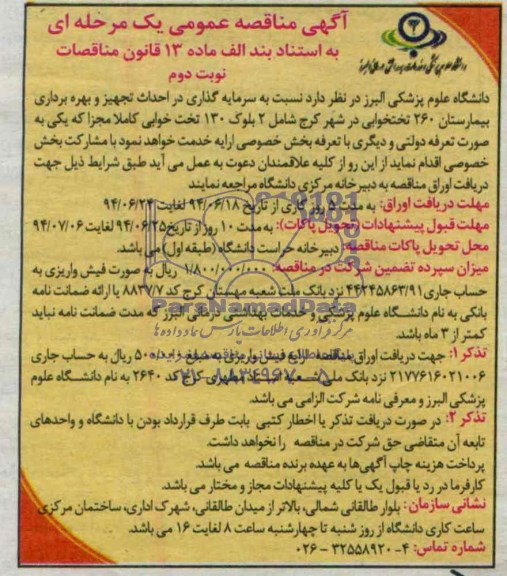 آگهی مناقصه عمومی یک مرحله ای
به استناد بند الف ماده ۱۳ قانون مناقصات
نوبت دوم
دانشگاه علوم پزشکی البرز در نظر دارد نسبت به سرمایه گذاری در احداث تجهیز و بهره برداری
بیمارستان ۲۶۰ تختخوابی در شهر کرج شامل ۲ بلوک ۱۳۰ تخت خوابی کاملا مجزا که یکی به
صورت تعرفه دولتی و دیگری با تعرفه بخش خصوصی ارایه خدمت خواهد نمود با مشارکت بخش
خصوصی اقدام نماید از این رو از کلیه علاقمندان دعوت به عمل می آید طبق شرایط ذیل جهت
دریافت اوراق مناقصه به دبیرخانه مرکزی دانشگاه مراجعه نمایند
مهلت دریافت اوراق: به مدت ۵ روز کاری از تاریخ ۹۴/۰۶/۱۸ لغایت ۹۴/۰۶/۲۴
مهلت قبول پیشنهادات (تحویل پاکات): به مدت ۱۰ روز از تاریخ ۹۴/۰۶/۲۵ لغایت ۹۴/۰۷/۰۶
محل تحویل پاکات مناقصه: دبیرخانه حراست دانشگاه (طبقه اول) می باشد.
میزان سپرده تضمین شرکت در مناقصه: ۱/۸۰۰/۰۰۰/۰۰۰ ریال به صورت فیش واریزی به
حساب جاری ۴۴۲۴۵۸۶۳/۹۱ نزد بانک ملت شعبه مهستان کرج کد ۸۸۳۷/۷ یا ارائه ضمانت نامه
بانکی به نام دانشگاه علوم پزشکی و خدمات بهداشتی درمانی البرز که مدت ضمانت نامه نباید
کمتر از ۳ ماه باشد.
تذکر ۱: جهت دریافت اوراق مناقصه ارایه فیش واریزی به مبلغ ریال به حساب جاری
۲۱۷۷۶۱۶۰۲۱۰۰۶ نزد بانک ملی شعبه مطهری کرج کد ۲۶۴۰ به نام دانشگاه علوم
پزشکی البرز و معرفی نامه شرکت الزامی می باشد.
تذکر ۲: در صورت دریافت تذکر یا اخطار کتبی بابت طرف قرارداد بودن با دانشگاه و واحدهای
تابعه آن متقاضی حق شرکت در مناقصه را نخواهد داشت.
پرداخت هزینه چاپ آگهی‌ها به عهده برنده مناقصه می باشد.
کارفرما در رد یا قبول یک یا کلیه پیشنهادات مجاز و مختار می باشد.
نشانی سازمان: بلوار طالقانی شمالی، بالاتر از میدان طالقانی، شهرک اداری، ساختمان مرکزی
ساعت کاری دانشگاه از روز شنبه تا چهارشنبه ساعت ۸ لغایت ۱۶ می باشد.
شماره تماس: ۴-۳۲۵۵۸۹۲۰-۰۲۶
ParsNamadData
مرکز فرآوری اطلاعات پارس نماد داده ها
۰۲۱-۸۸۳۴۹۶۷۰-۵